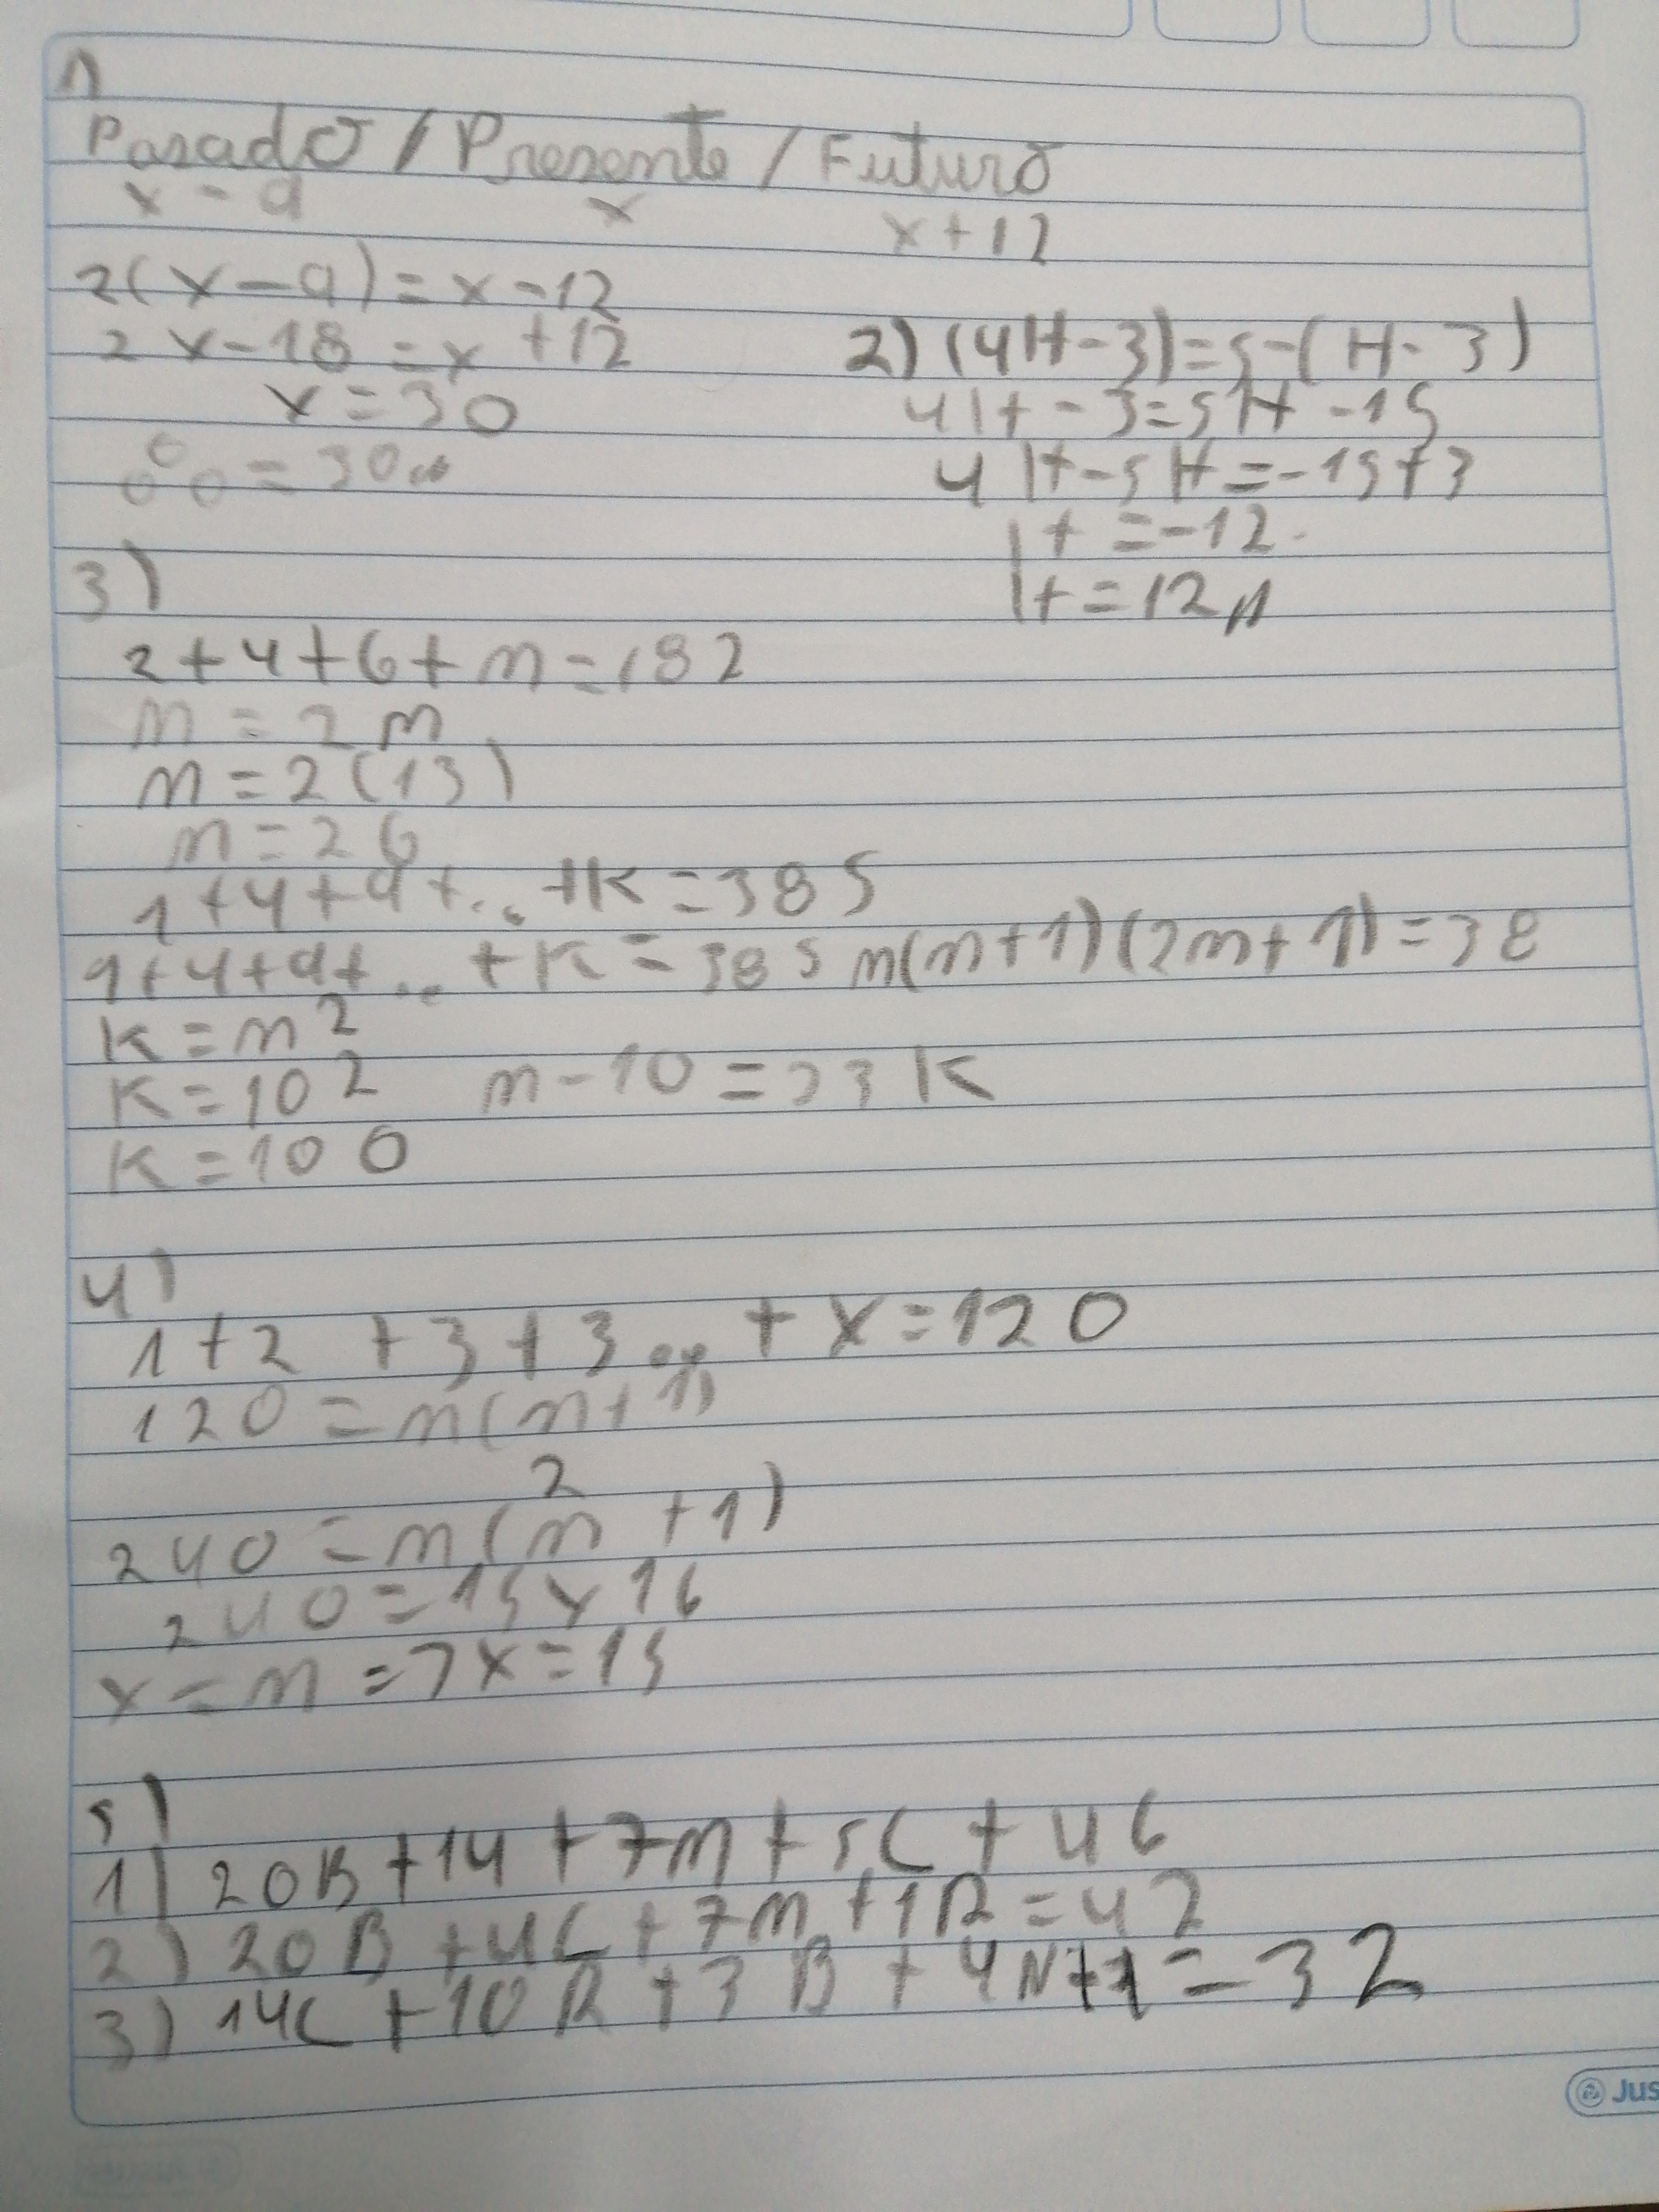 1)
Pasado / Presente / Futuro
x - 9 x x + 12
2(x - 9) = x - 12
2x - 18 = x + 12
x = 30
= 30
2) (4H - 3) = 5 - (H - 3)
4H - 3 = 5H - 15
4H - 5H = -15 + 3
H = -12
H = 12
3)
2 + 4 + 6 + m = 182
m = 2m
m = 2(13)
m = 26
1 + 4 + 9 + ... + K = 385
1 + 4 + 9 + ... + K = 385 m(m + 1)(2m + 1) = 38
K = m²
K = 10² m - 10 = 23K
K = 100
4)
1 + 2 + 3 + 3 ... + x = 120
120 = m(m + 1)
2
240 = m(m + 1)
240 = 15 x 16
x = m = 7x = 15
5)
1) 20B + 14 + 7m + 5C + 46
2) 20B + 4C + 7m + 1R = 42
3) 14C + 10R + 3B + 4N + 1 = 32
Jus